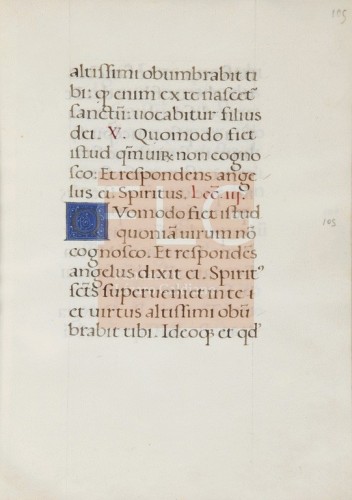 105
altissimi obumbrabit ti
bi: qꝫ enim ex te nascet᷑
sanctū: uocabitur filius
dei. V. Quomodo fiet
istud qm̄ uiꝝ non cogno
sco: Et respondens ange
lus ei. Spiritus. Lec̄. iij.
QVomodo fiet istud
quoniā uirum nō
cognosco. Et respondēs
angelus dixit ei. Spirit⁹
sc̄ts superueniet in te:
et uirtus altissimi obū
brabit tibi. Ideoqꝫ et qd'
105
FLG